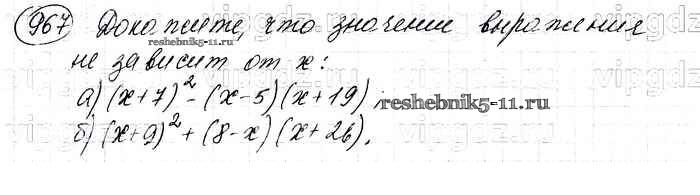 967 Докажите, что значение выражения
не зависит от x:
а) (x+7)² - (x-5)(x+19);
б) (x+9)² + (8-x)(x+26).
www.reshebnik5-11.ru
reshebnik5-11.ru
vipgdz
vipgdz
vipgdz